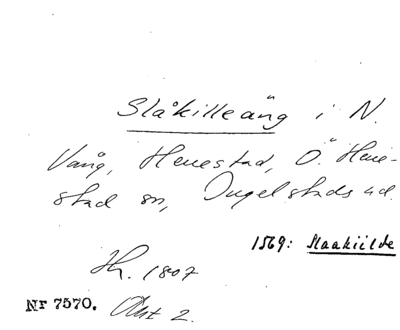 Slåkilleäng i N.
Vång, Henestad, Ö. Hene-
stad sn, Ingelstads hd.
1569: Slaakiilde
Hs. 1807
Nr 7570. Akt 2.